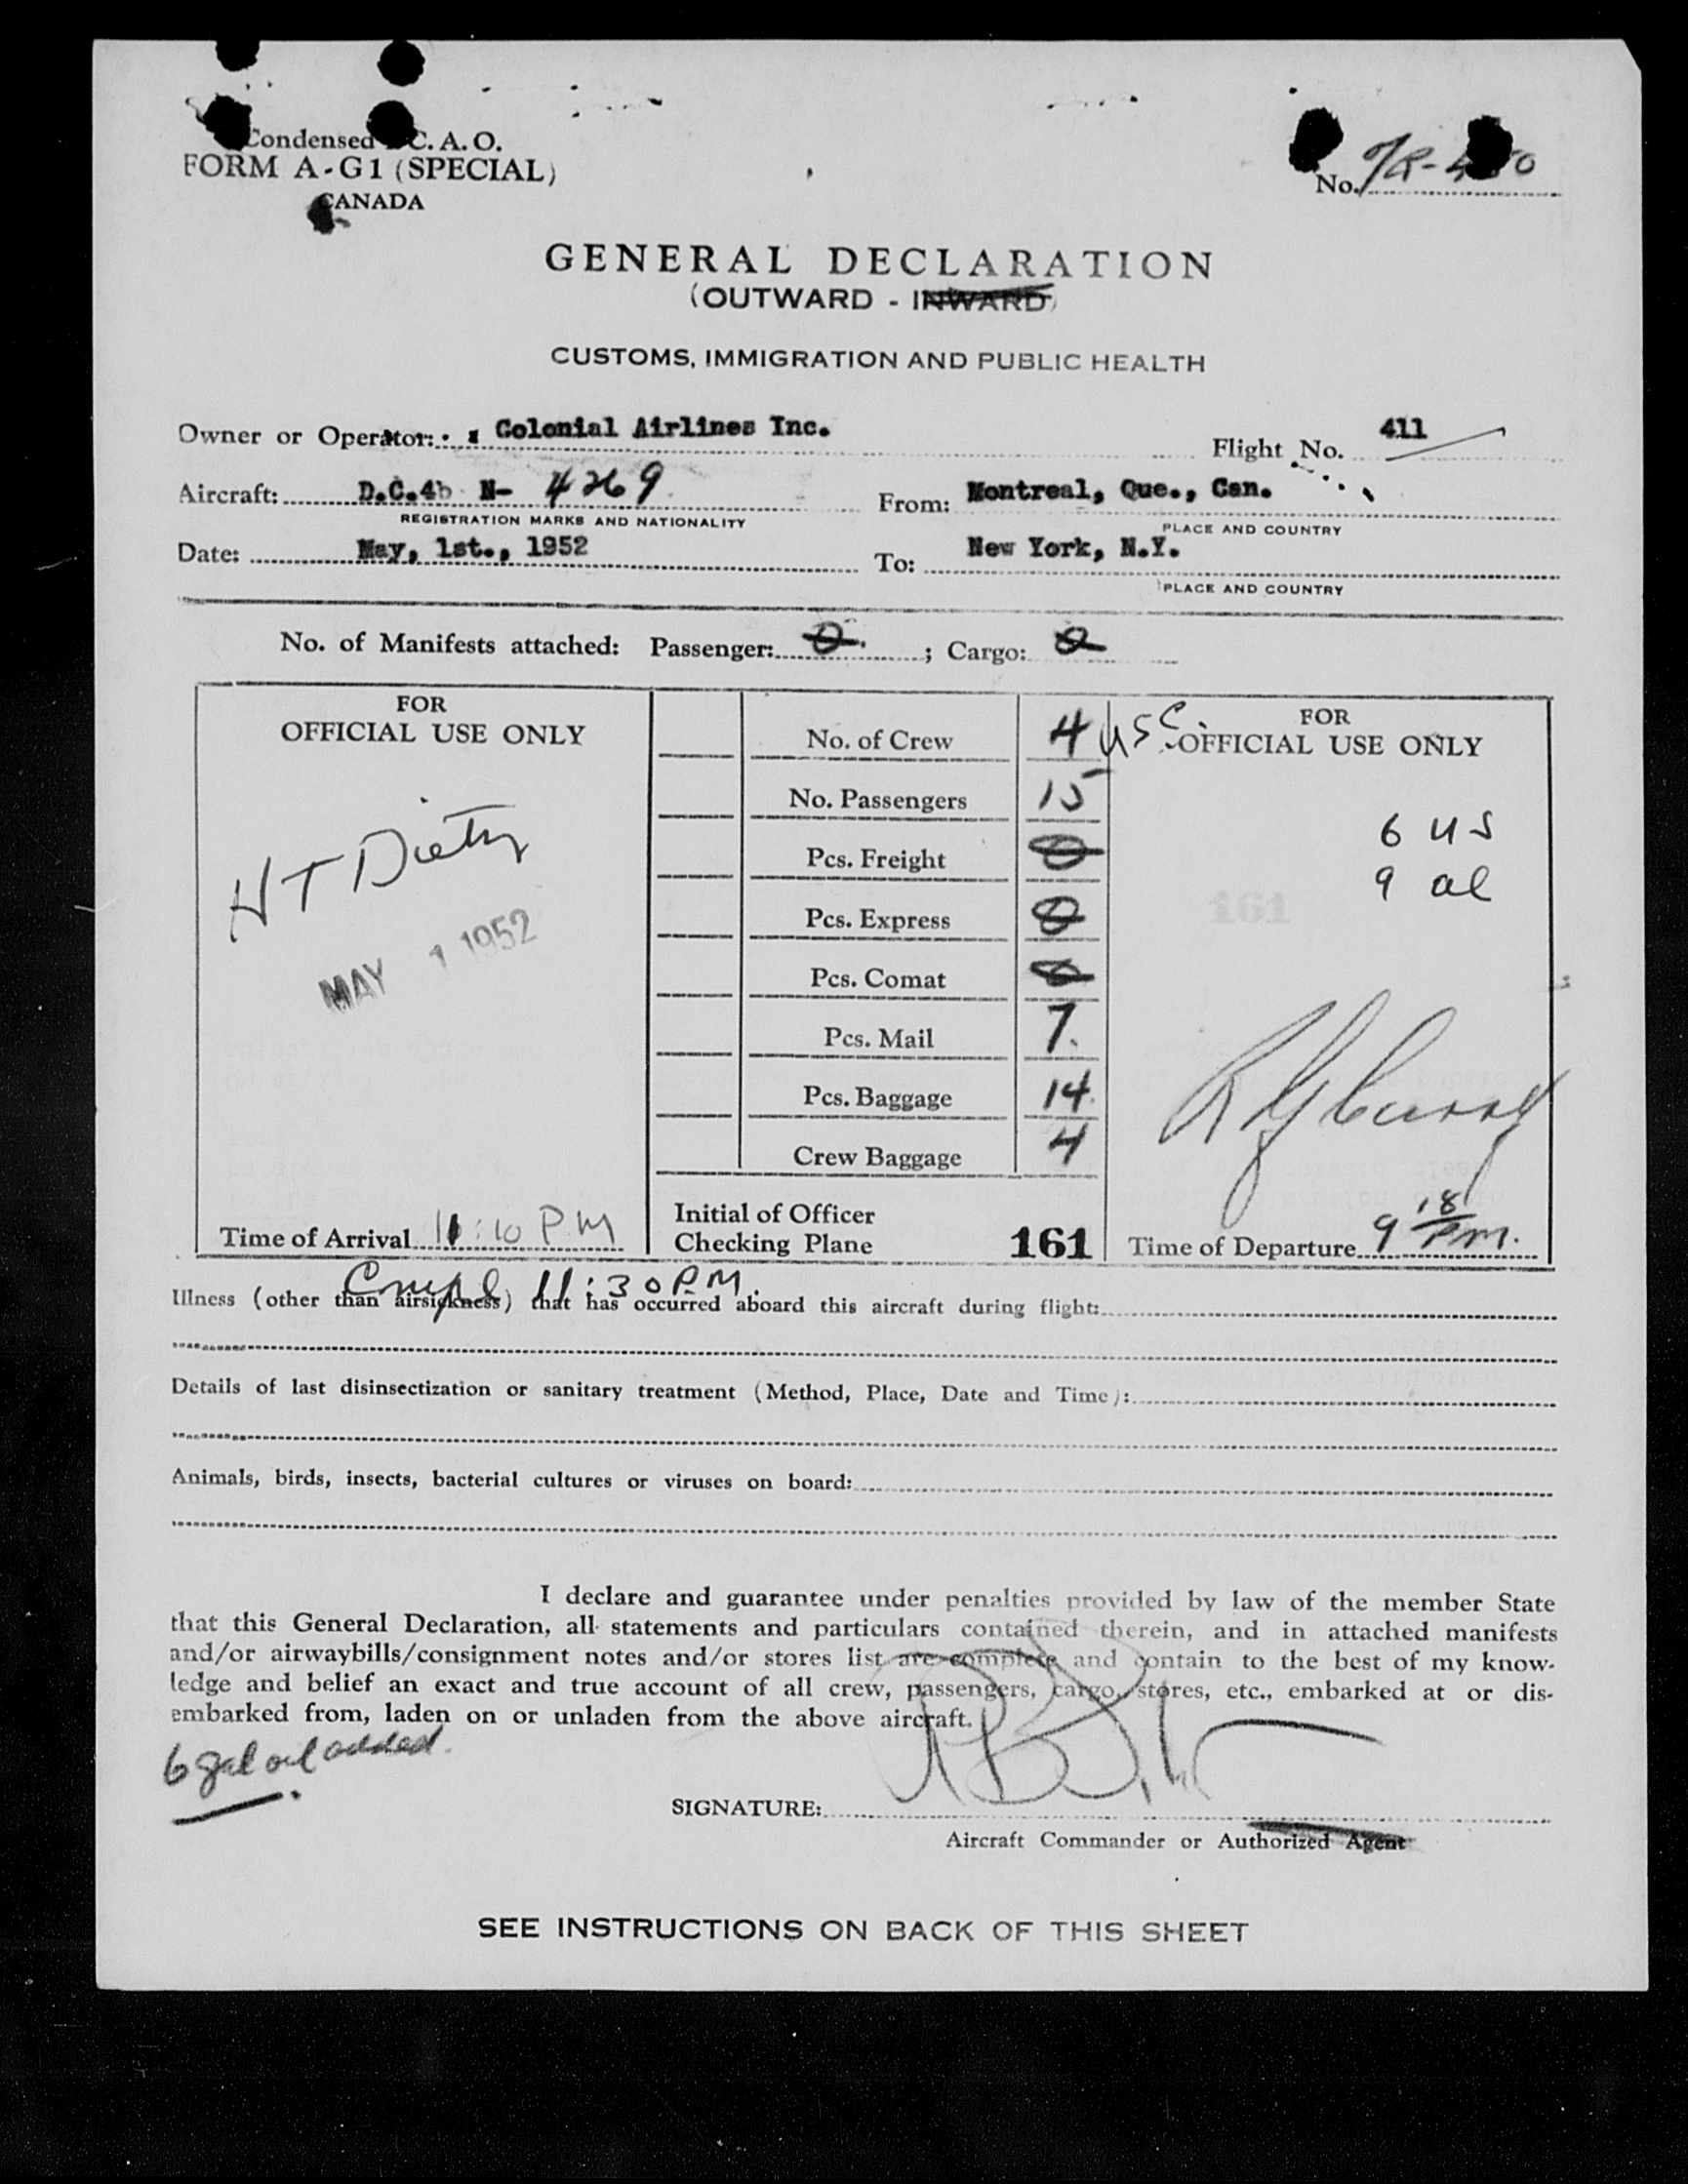 Condensed C. A. O.
FORM A-G1 (SPECIAL)
CANADA
No.
GENERAL DECLARATION
(OUTWARD - INWARD)
CUSTOMS, IMMIGRATION AND PUBLIC HEALTH
Owner or Operator: Colonial Airlines Inc. Flight No. 411
Aircraft: D.C.4 N- 4269 From: Montreal, Que., Can.
REGISTRATION MARKS AND NATIONALITY PLACE AND COUNTRY
Date: May, 1st., 1952 To: New York, N.Y.
PLACE AND COUNTRY
No. of Manifests attached: Passenger: 0 ; Cargo: 0
FOR
OFFICIAL USE ONLY
H T
MAY 1 1952
Time of Arrival 11:10 PM
No. of Crew 4 USC.
No. Passengers 15
Pcs. Freight 0
Pcs. Express 0
Pcs. Comat 0
Pcs. Mail 7.
Pcs. Baggage 14
Crew Baggage 4
Initial of Officer
Checking Plane 161
FOR
OFFICIAL USE ONLY
6 US
9 al
161
Time of Departure 9 18 PM.
Compl 11:30 P.M.
Illness (other than airsickness) that has occurred aboard this aircraft during flight:
Details of last disinsectization or sanitary treatment (Method, Place, Date and Time):
Animals, birds, insects, bacterial cultures or viruses on board:
I declare and guarantee under penalties provided by law of the member State
that this General Declaration, all statements and particulars contained therein, and in attached manifests
and/or airwaybills/consignment notes and/or stores list are complete and contain to the best of my know-
ledge and belief an exact and true account of all crew, passengers, cargo, stores, etc., embarked at or dis-
embarked from, laden on or unladen from the above aircraft.
6 gal oil added.
SIGNATURE:
Aircraft Commander or Authorized Agent
SEE INSTRUCTIONS ON BACK OF THIS SHEET